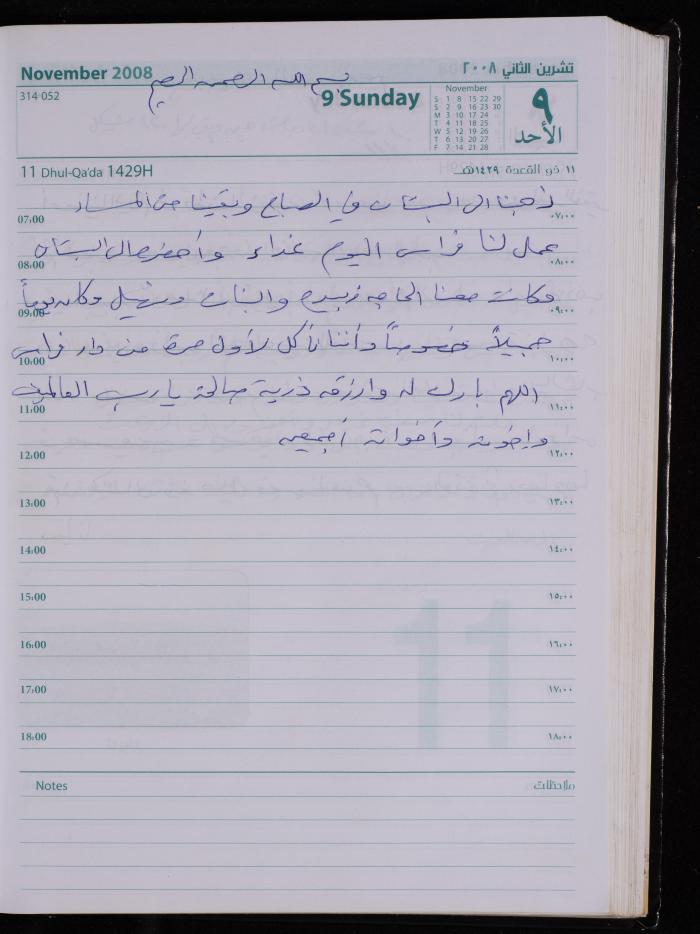 November 2008
تشرين الثاني ٢٠٠٨
بسم الله الرحمن الرحيم
314-052
9 Sunday
November
S 1 8 15 22 29
S 2 9 16 23 30
M 3 10 17 24
T 4 11 18 25
W 5 12 19 26
T 6 13 20 27
F 7 14 21 28
٩
الأحد
11 Dhul-Qa'da 1429H
١١ ذو القعدة ١٤٢٩هـ
ذهبنا الى البستان في الصباح وبقينا حتى المساء
07:00 ٠٧:٠٠
عمل لنا فراس اليوم غداء وأحضره الى البستان
08:00 ٠٨:٠٠
وكانت معنا الحاجه زبيده والبنات وسهيل وكان يوماً
09:00 ٠٩:٠٠
جميلاً خصوصاً وأننا نأكل لأول مرة من دار فراس
10:00 ١٠:٠٠
اللهم بارك له وارزقه ذرية صالحة يا رب العالمين
11:00 ١١:٠٠
وإخوته وأخواته أجمعين
12:00 ١٢:٠٠
13:00 ١٣:٠٠
14:00 ١٤:٠٠
15:00 ١٥:٠٠
16:00 ١٦:٠٠
17:00 ١٧:٠٠
18:00 ١٨:٠٠
11
Notes
ملاحظات